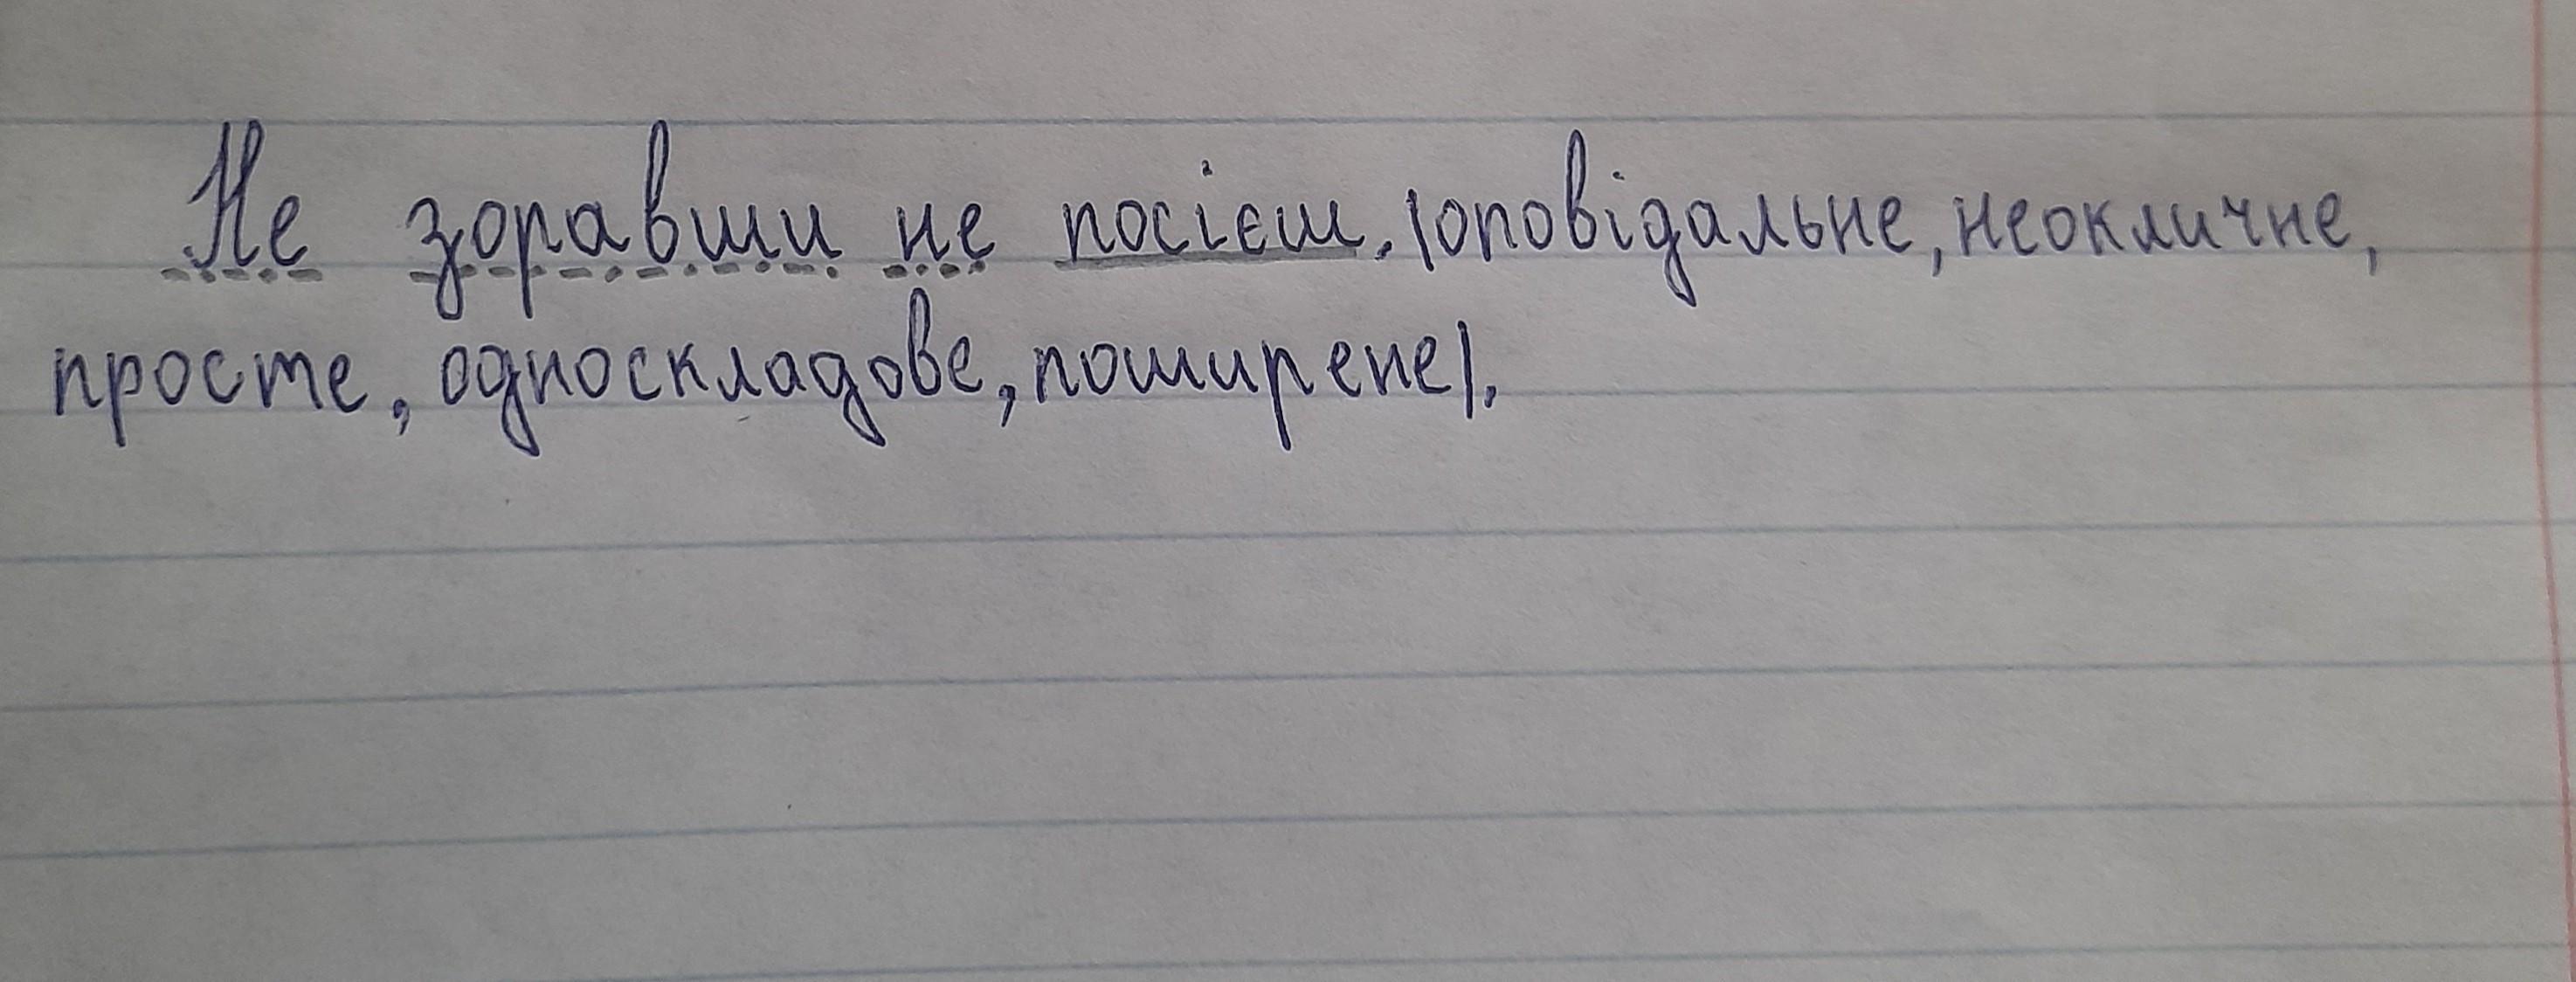 Не зоравши не посієш. (оповідальне, неокличне,
просте, односкладове, поширене).